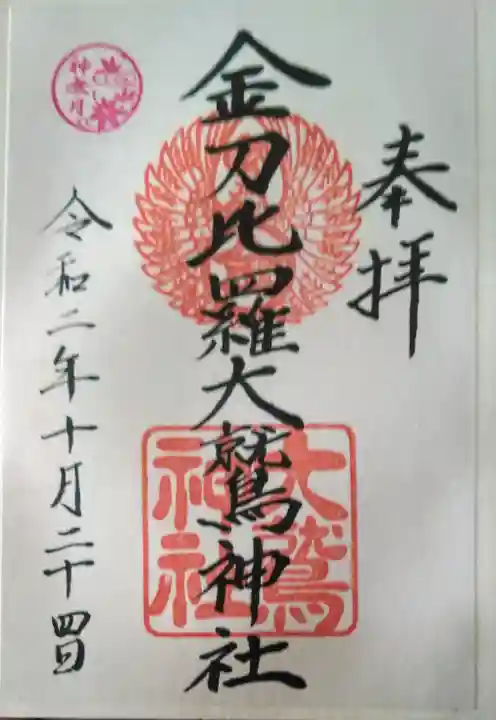 奉拝
金刀比羅大鷲神社
大鷲
神社
令和二年十月二十四日
神無月